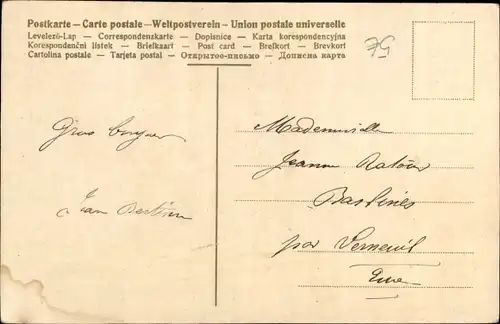 Postkarte – Carte postale – Weltpostverein – Union postale universelle
Levelező-Lap — Correspondenzkarte — Dopisnice — Karta korespondencyjna
Korespondenční lístek — Briefkaart — Post card — Brefkort — Brevkort
Cartolina postale — Tarjeta postal — Открытое-письмо — Дописна карта
75
Mademoiselle
Jeanne
Gros
Baslines
Jean
par Verneuil
Eure